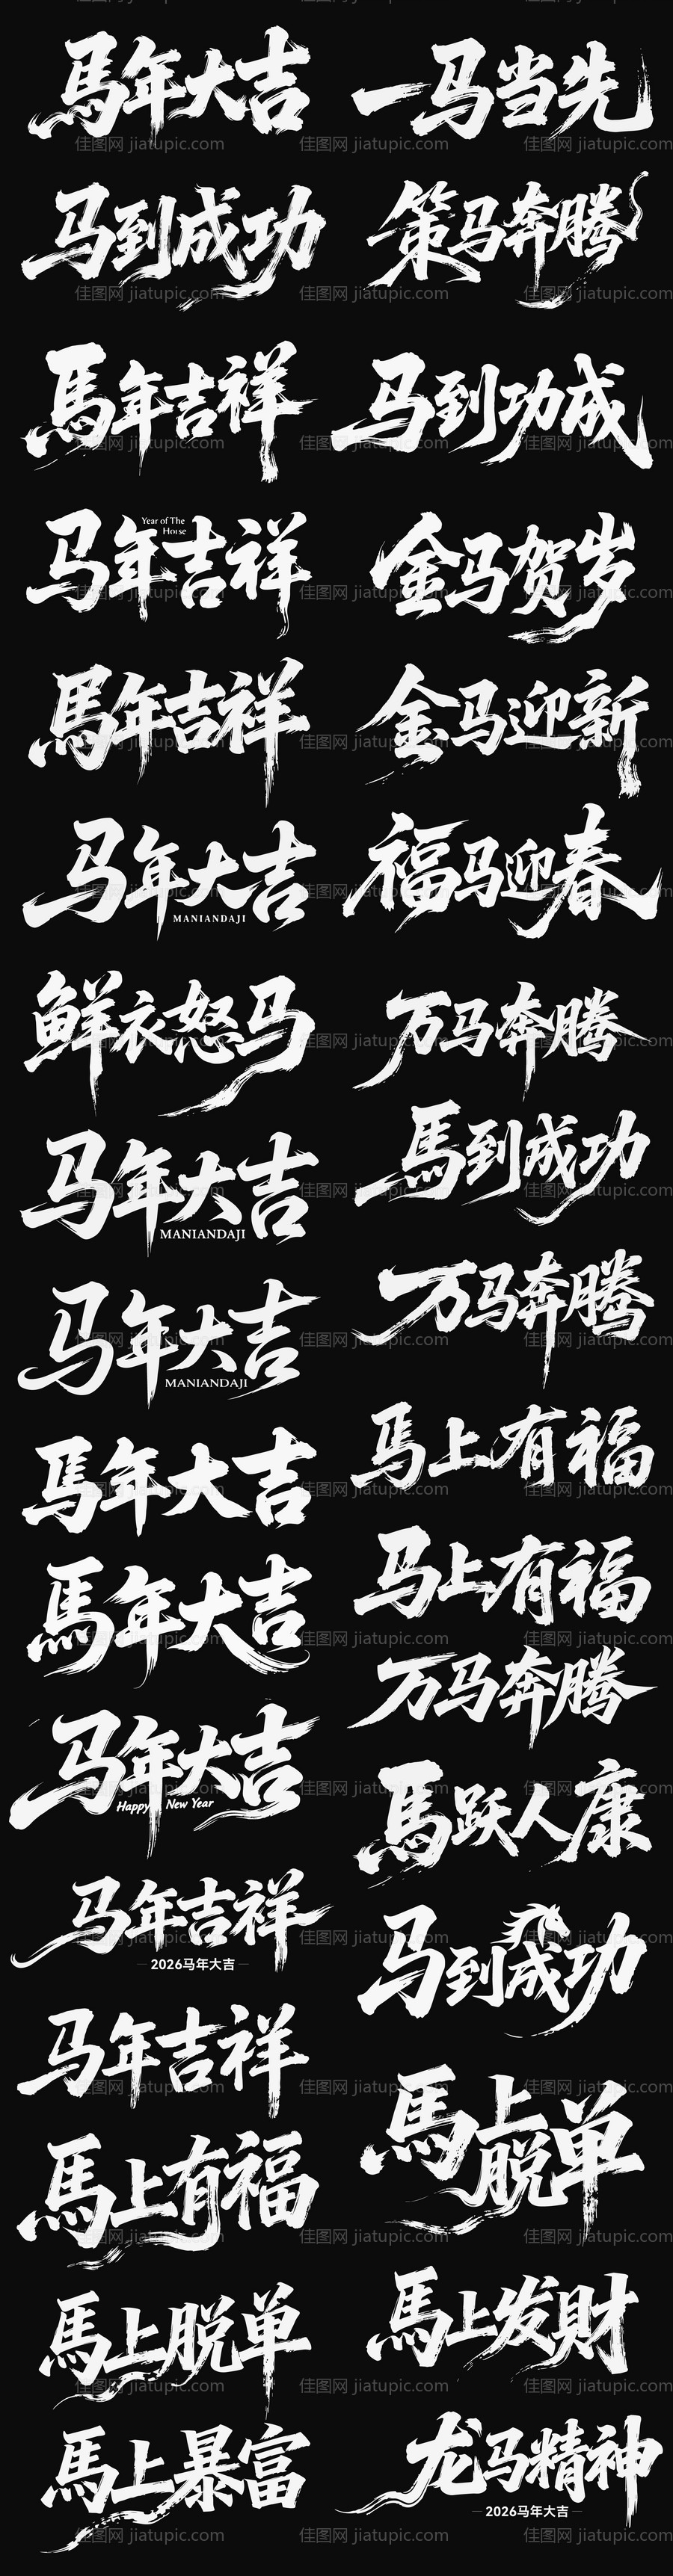 馬年大吉
一马当先
马到成功
策马奔腾
馬年吉祥
马到功成
马年吉祥
Year of The
Horse
金马贺岁
馬年吉祥
金马迎新
马年大吉
MANIANDAJI
福马迎春
鲜衣怒马
万马奔腾
马年大吉
MANIANDAJI
馬到成功
马年大吉
MANIANDAJI
万马奔腾
馬年大吉
马上有福
馬年大吉
马上有福
马年大吉
Happy New Year
万马奔腾
馬跃人康
马年吉祥
2026马年大吉
马到成功
马年吉祥
馬上脱单
馬上有福
馬上脱单
馬上发财
馬上暴富
龙马精神
2026马年大吉
佳图网 jiatupic.com